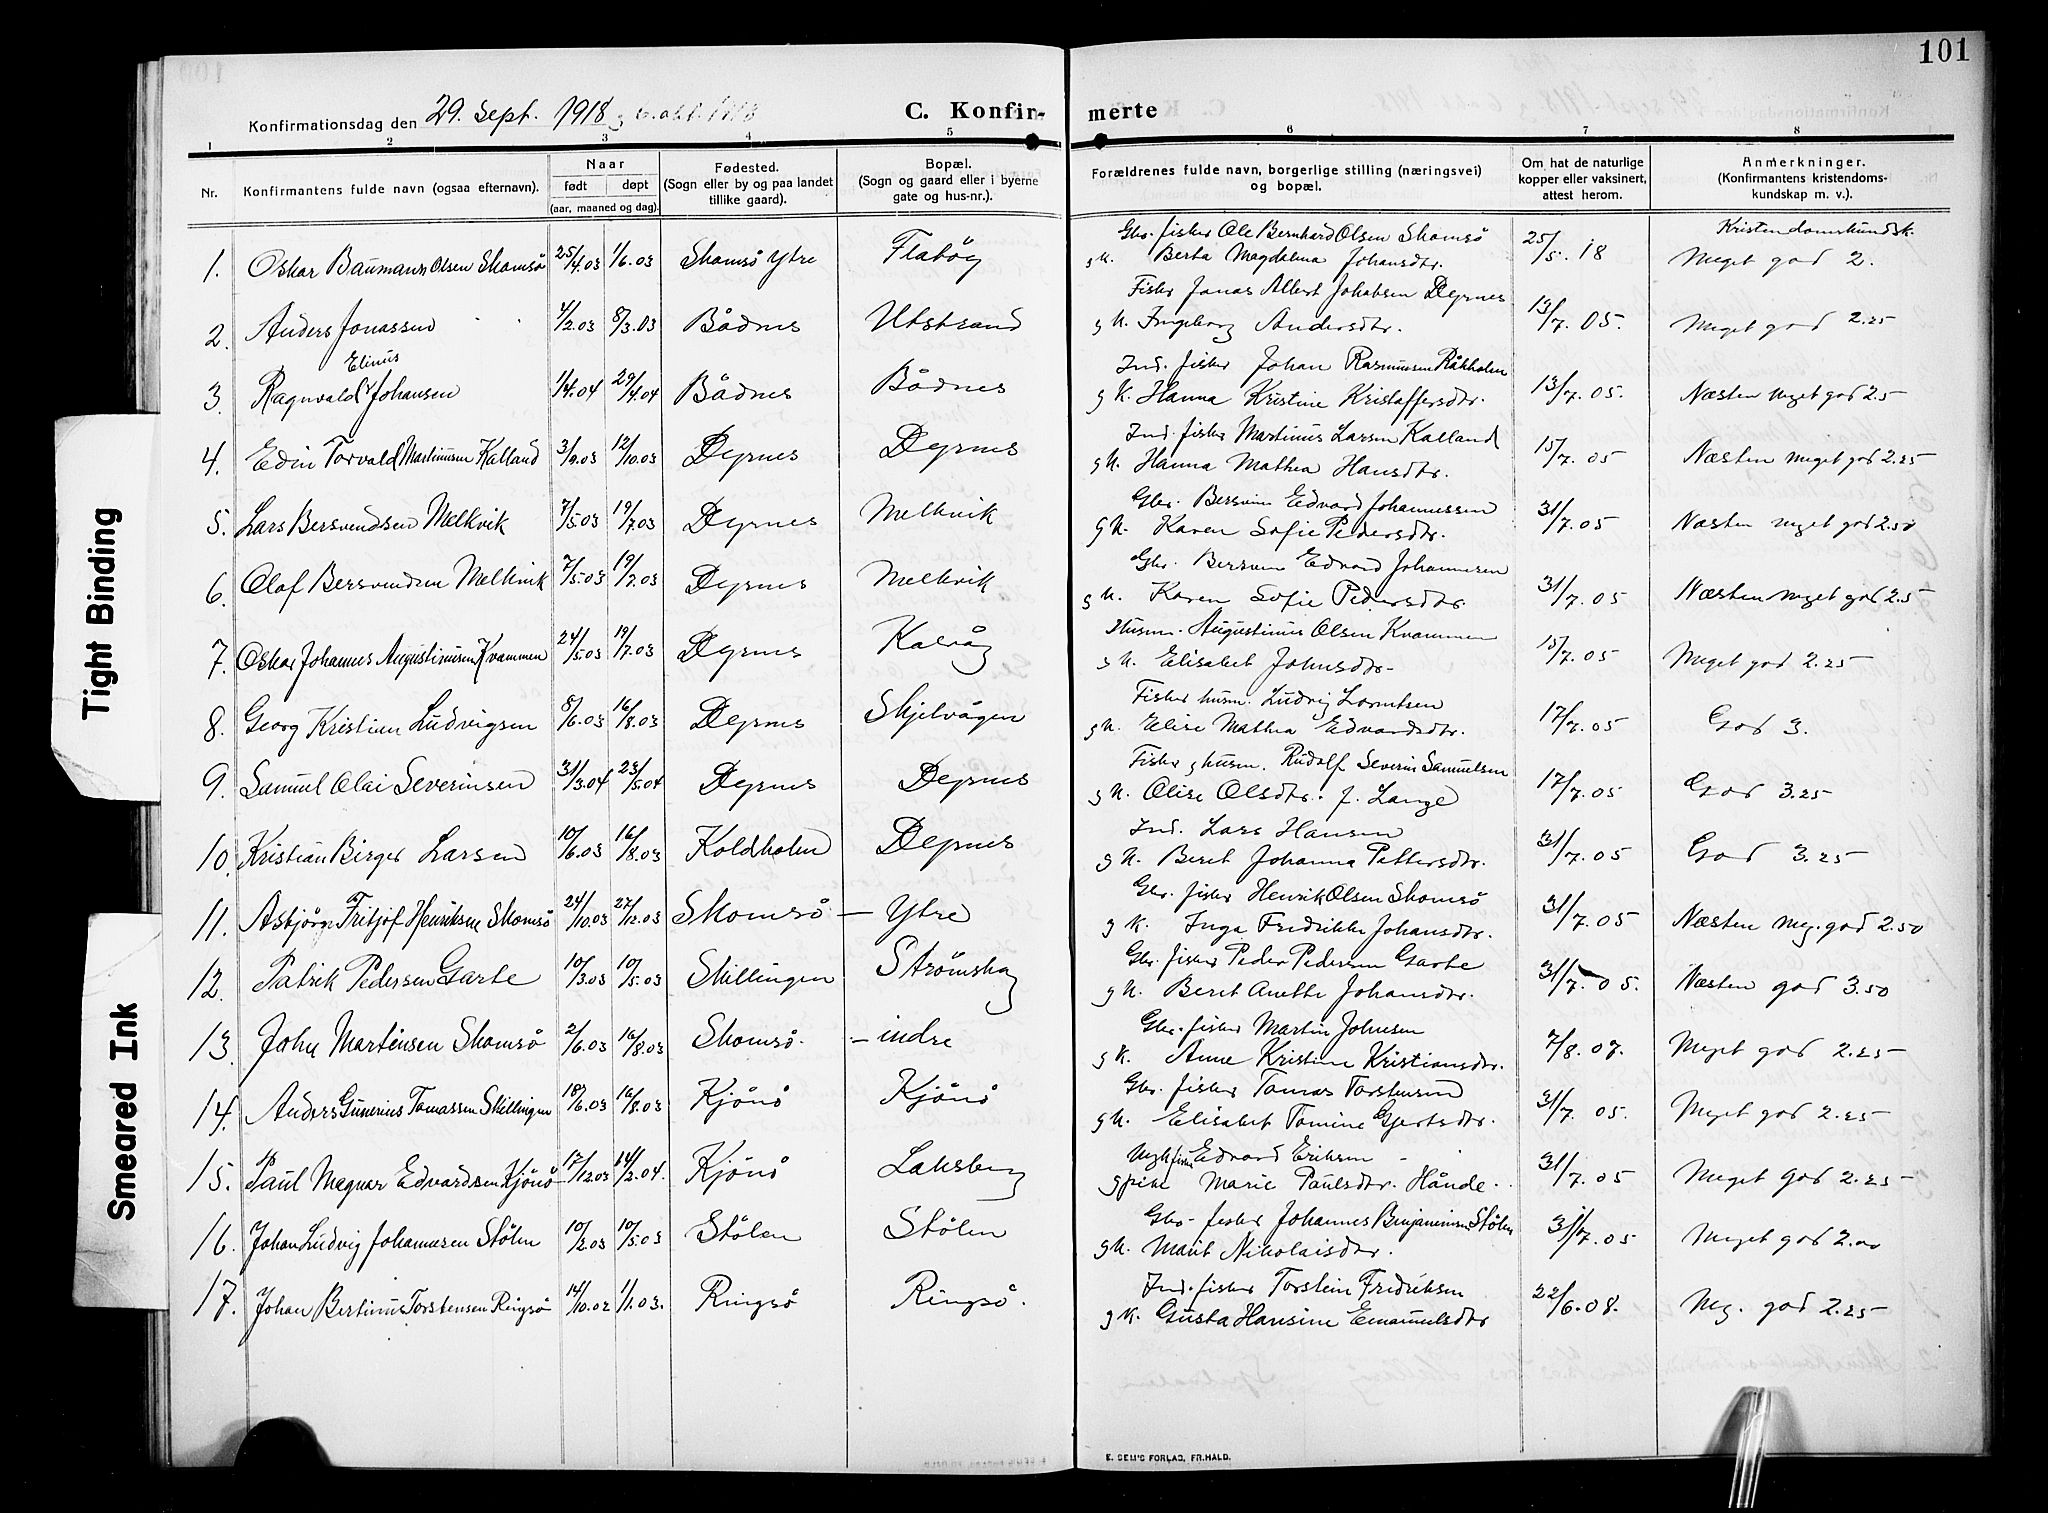 101
Konfirmationsdag den 29. Sept. 1918 og 6. okt. 1918
C. Konfir- merte
1 2 3 4 5 6 7 8
Nr.
Konfirmantens fulde navn (ogsaa efternavn).
Naar
født døpt
(aar, maaned og dag).
Fødested.
(Sogn eller by og paa landet
tillike gaard).
Bopæl.
(Sogn og gaard eller i byerne
gate og hus-nr.).
Forældrenes fulde navn, borgerlige stilling (næringsvei)
og bopæl.
Om hat de naturlige
kopper eller vaksinert,
attest herom.
Anmerkninger.
(Konfirmantens kristendoms-
kundskap m. v.).
Kristendomskundsk.
Gbr. fisker Ole Bernhard Olsen Skomsö
1. Oskar Baumann Olsen Skomsö 25/4.03 1/6.03 Skomsö Ytre Flatöy g K. Berta Magdalena Johansdtr. 25/5.18 Meget god 2.
Fisker Jonas Albert Johabsen Dyrnes
2. Anders Jonassen 4/2.03 8/3.03 Bådnes Utstrand g K. Ingeborg Andersdtr. 13/7.05. Meget god 2.25
Elinus
Ind. fisker Johan Rasmussen Råkholm
3. Ragnvald Johansen 1/4.04 29/4.04 Bådnes Bådnes g K. Hanna Kristine Kristoffersdtr. 13/7.05. Næsten meget god 2.5
Ind. fisker Martinus Larsen Kalland
4. Edin Torvald Martinusen Kalland 3/9.03 12/10.03 Dyrnes Dyrnes g K. Hanna Mathea Hansdtr. 15/7.05 Næsten meget god 2.25
Gbr. Bersvein Edvard Johannessen
5. Lars Bersvendsen Melkvik 7/5.03 19/7.03 Dyrnes Melkvik g K. Karen Sofie Pedersdtr. 31/7.05 Næsten meget god 2.50
Gbr. Bersvein Edvard Johannesen
6. Olaf Bersvendsen Melkvik 7/5.03 19/7.03 Dyrnes Melkvik g K. Karen Sofie Pedersdtr. 31/7.05 Næsten meget god 2.5
Husm. Augustinus Olsen Kvammen
7. Oskar Johannes Augustinusen Kvammen 24/5.03 19/7.03 Dyrnes Kalvåg g K. Elisabet Johnsdtr. 15/7.05 Meget god 2.25
Fisker husm. Ludvig Lorentsen
8. Georg Kristian Ludvigsen 8/6.03 16/8.03 Dyrnes Skjelvågen g K. Elise Mathea Edvardsdtr. 17/7.05 God 3.
Fisker g husm. Rudolf Severin Samuelsen
9. Samuel Olai Severinsen 31/3.04 23/5.04 Dyrnes Dyrnes g K. Olise Olsdtr. f. Lange 17/7.05 God 3.25
Ind. Lars Hansen
10. Kristian Birger Larsen 10/6.03 16/8.03 Koldholm Dyrnes g K. Beret Johanna Pettersdtr. 31/7.05 God 3.25
Gbr. fisker Henrik Olsen Skomsö
11. Asbjörn Fritjof Henriksen Skomsö 24/10.03 27/12.03 Skomsö - Ytre g K. Inga Fredrikke Johansdtr. 31/7.05 Næsten meg. god 2.50
Gbr. fisker Peder Pedersen Garte
12. Patrik Pedersen Garte 10/3.03 10/5.03 Skillingen Strömshag g K. Beret Anette Johansdtr. 31/7.05. Næsten god 3.50
Gbr. fisker Martin Johnsen
13. John Martensen Skomsö 2/6.03 16/8.03 Skomsö. - indre g K. Anne Kristine Kristiansdtr. 7/8.07. Meget god 2.25
Gbr. fisker Tomas Torstensen
14. Anders Gunerius Tomassen Skillingen 18/6.03 16/8.03 Kjönö Kjönö g K. Elisabet Tomine Gjertsdtr. 31/7.05. Meget god 2.25
Ungk fisker Edvard Eriksen
15. Paul Magnar Edvardsen Kjönö 17/12.03 14/2.04. Kjönö Laksberg g pike Marie Paulsdtr. Hånde. 31/7.05 Meget god 2.25
Gbr. fisker Johannes Benjaminsen Stölen
16. Johan Ludvig Johannesen Stölen 10/2.03 10/5.03 Stölen Stölen g K. Marit Nikolaisdtr. 31/7.05 Meget god 2.00
Ind. fisker Torstein Fredriksen
17. Johan Bertinus Torstensen Ringsö 14/10.02 1/1.03. Ringsö Ringsö. g K. Gusta Hansine Emanuelsdtr 22/6.08. Meg. god 2.25
E. SEM'S FORLAG, FR.HALD.
Tight Binding
Smeared Ink